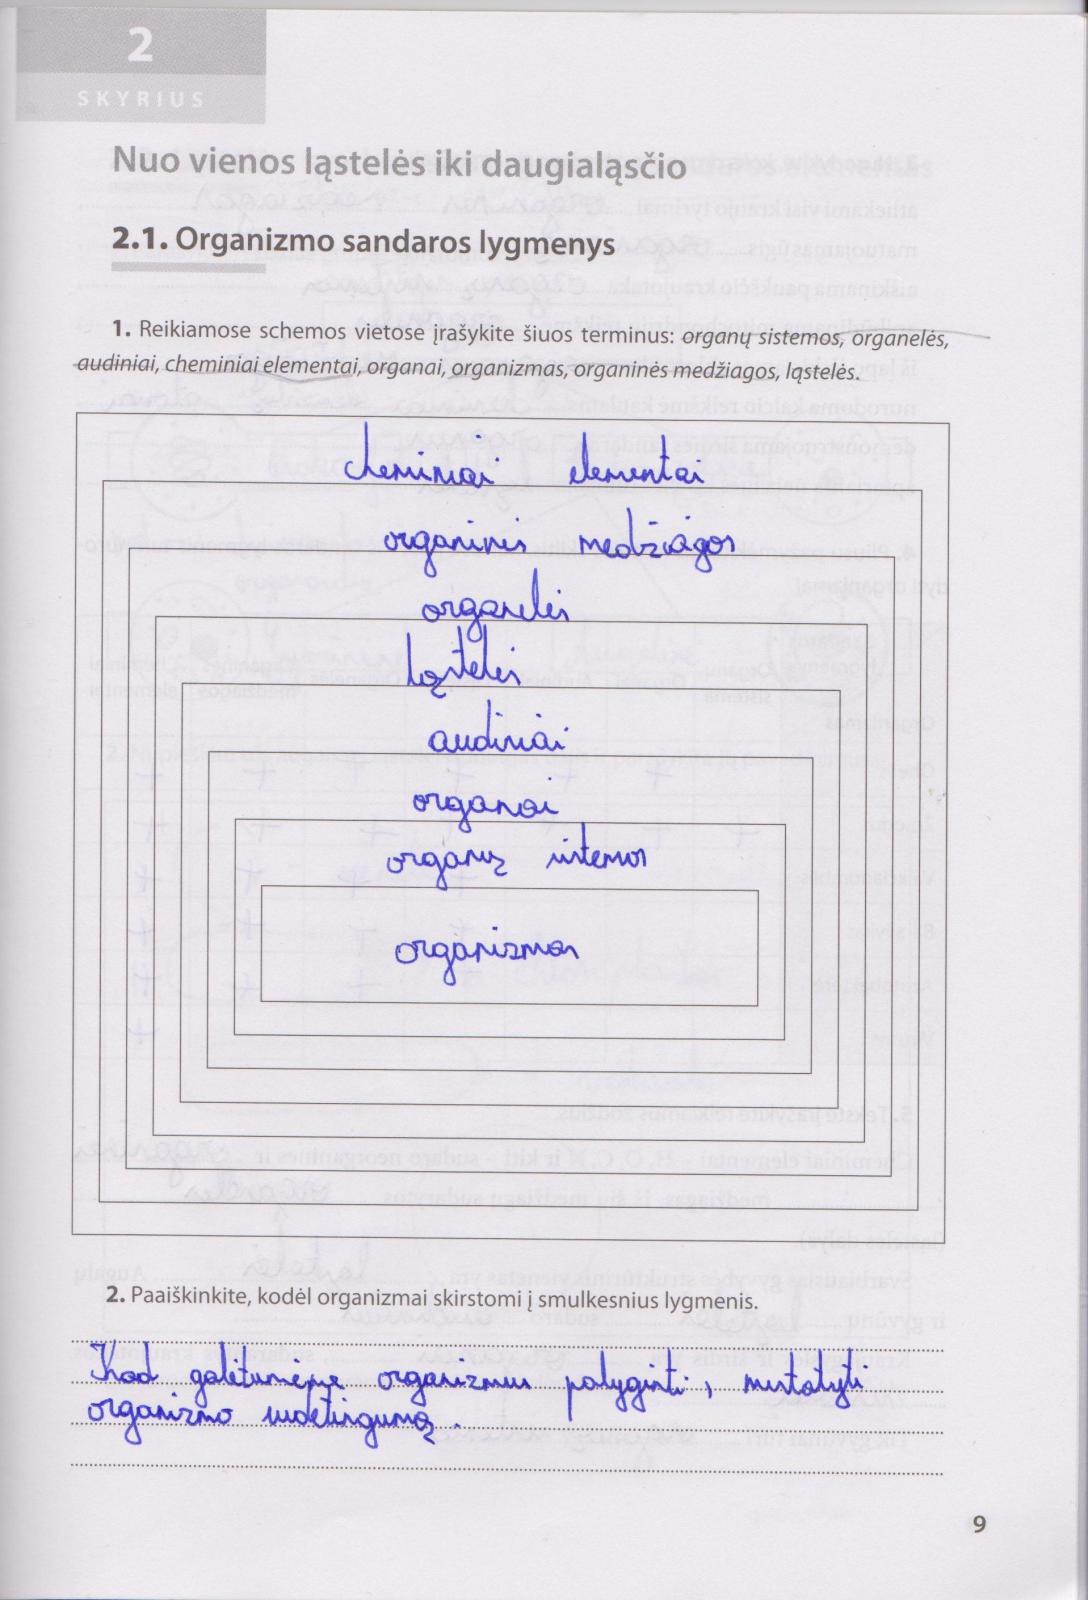 2
SKYRIUS
Nuo vienos ląstelės iki daugialąsčio
2.1. Organizmo sandaros lygmenys
1. Reikiamose schemos vietose įrašykite šiuos terminus: organų sistemos, organelės,
audiniai, cheminiai elementai, organai, organizmas, organinės medžiagos, ląstelės.
cheminiai elementai
organinės medžiagos
organelės
ląstelės
audiniai
organai
organų sistemos
organizmas
2. Paaiškinkite, kodėl organizmai skirstomi į smulkesnius lygmenis.
Kad galėtumėme organizmus palyginti, nustatyti
organizmo sudėtingumą.
9